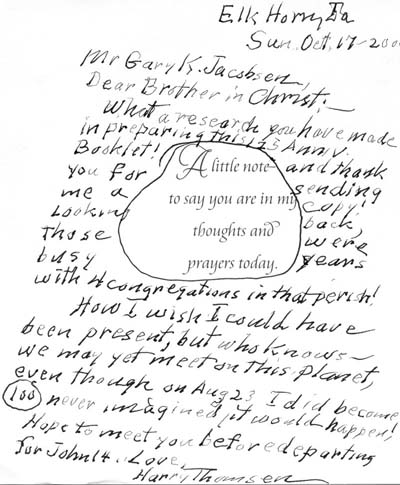 Elk Horn, Ia
Sun. Oct, 17-200
Mr Gary K. Jacobsen,
Dear Brother in Christ; —
What a research you have made
in preparing this 125 Anniv.
Booklet! and thank
you for sending
me a copy!
Looking back,
those were
busy years
A little note
to say you are in my
thoughts and
prayers today.
with 4 congregations in that perish!
How I wish I could have
been present, but who knows —
we may yet meet on this planet,
even though on Aug 23 I did become
100 never imagined, it would happen!
Hope to meet you before departing
for John 14. Love,
Harry Thomsen